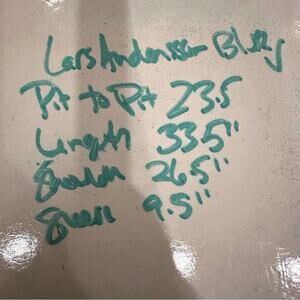 Lars Anderson Blues
Pit to Pit 23.5
Length 33.5"
26.5"
9.5"